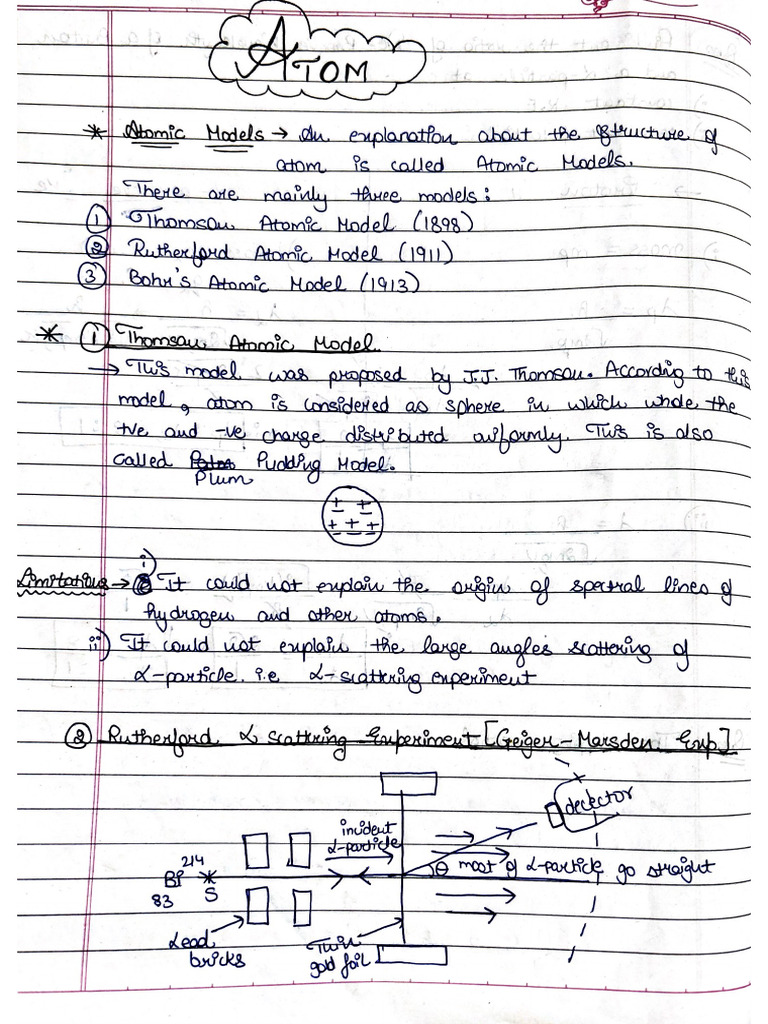 ATOM
* Atomic Models → An explanation about the structure of
atom is called Atomic Models.
There are mainly three models:
① Thomson Atomic Model (1898)
② Rutherford Atomic Model (1911)
③ Bohr's Atomic Model (1913)
* ① Thomson Atomic Model.
→ This model was proposed by J.J. Thomson. According to this
model, atom is considered as sphere in which whole the
+ve and -ve charge distributed uniformly. This is also
called Plum Pudding Model.
Limitations → i) It could not explain the origin of spectral lines of
hydrogen and other atoms.
ii) It could not explain the large angles scattering of
α-particle. i.e α-scattring experiment
② Rutherford α scattring Experiment [Geiger-Marsden Exp]
detector
incident
α-particle
214
Bi
83
S
θ most of α-particle go straight
Lead
bricks
Thin
gold foil